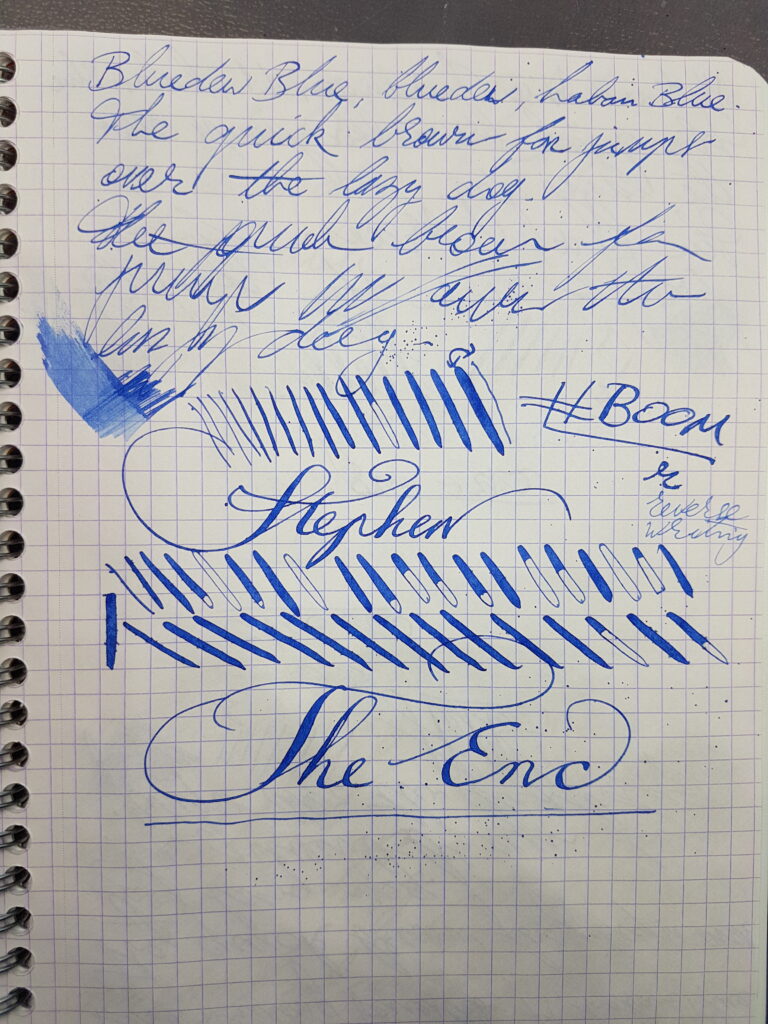 Blueden Blue, blueden, Laban Blue.
The quick brown fox jumps
over the lazy dog.
The quick brown fox
jumps over the
lazy dog.
#BOOM
reverse
writing
Stephen
The End